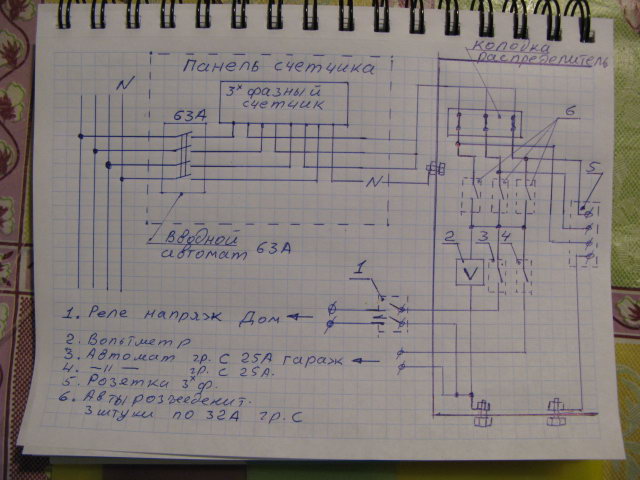 колодка
распределитель
Панель счетчика
N
3х фазный
счетчик
63А
6
5
N
Вводной
автомат 63А
2
3
4
V
1
1. Реле напряж Дом
2. Вольтметр
3. Автомат гр. С 25А гараж
4. —||— гр. С 25А.
5. Розетка 3х ф.
6. Авты розъеденит.
3 штуки по 32А гр. С